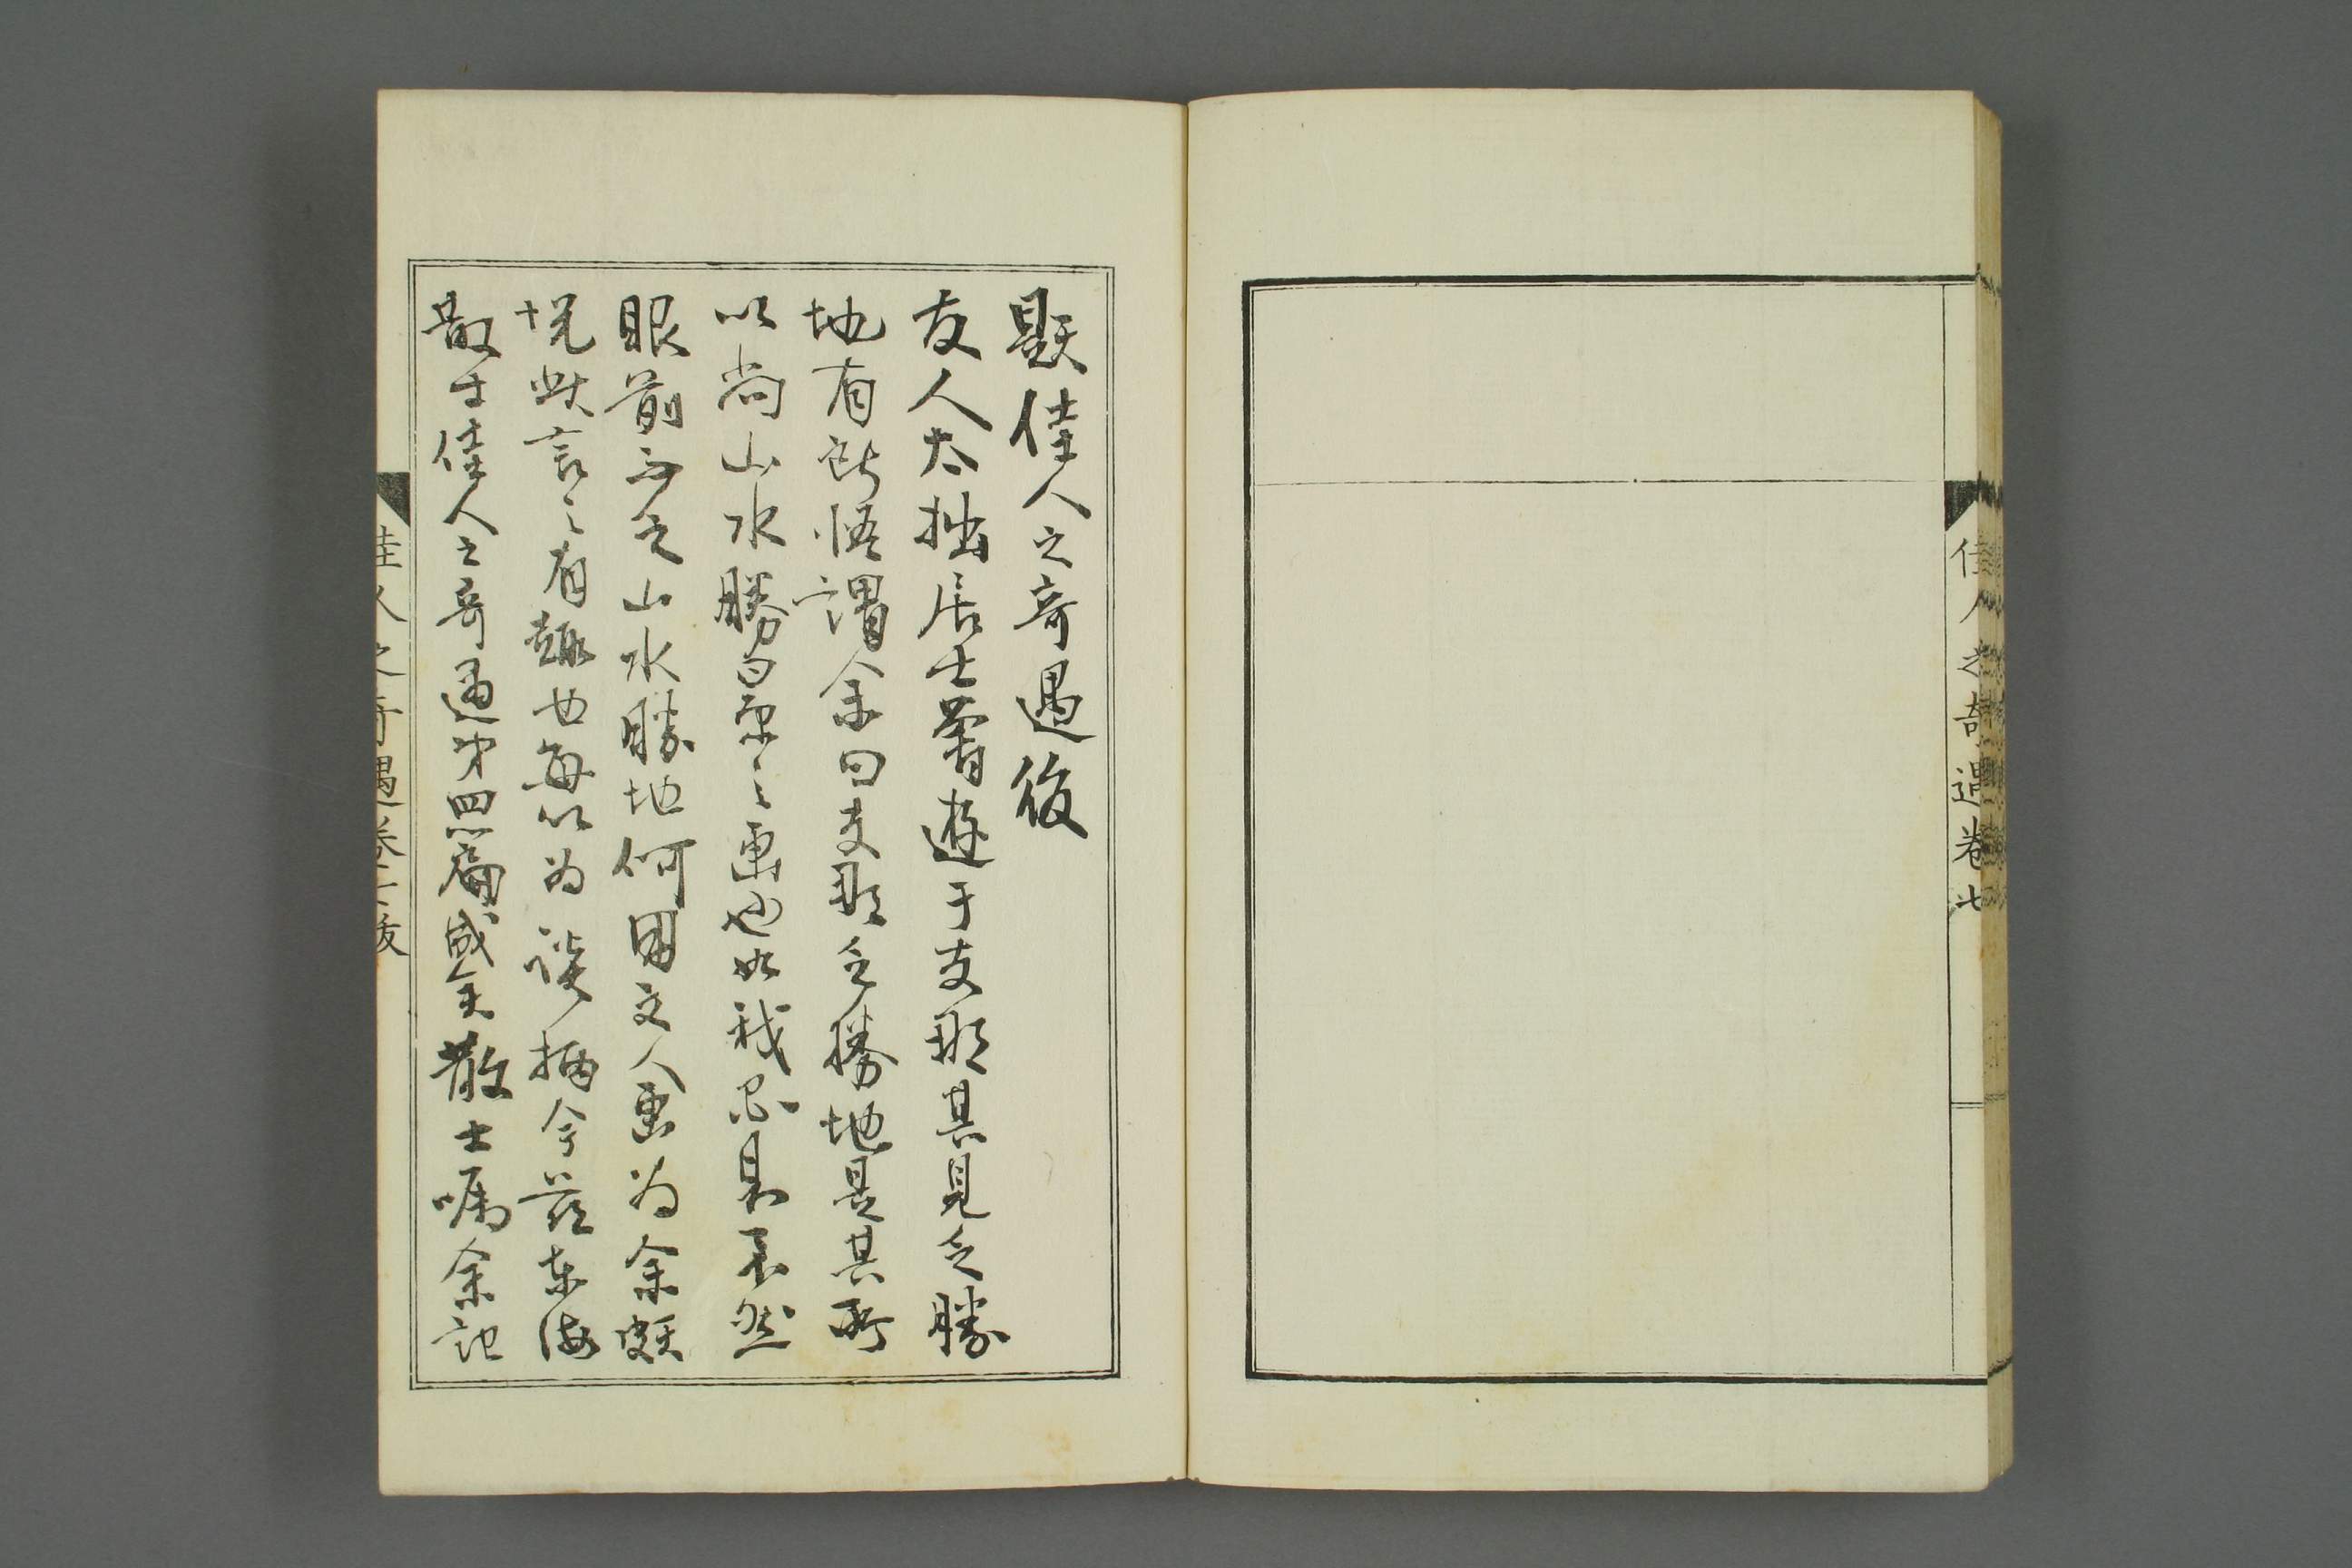 佳人之奇遇卷七
題佳人之奇遇後
友人太拙居士嘗遊于支那其見乏勝
地有所悟謂余曰支那乏勝地是其所
以尚山水勝景之畫也如我不然
眼前不乏山水勝地何用文人畫為余頗
悅此言之有趣也每以為談柄今茲東海
散士佳人之奇遇第四篇成矣散士囑余記
佳人之奇遇卷七跋